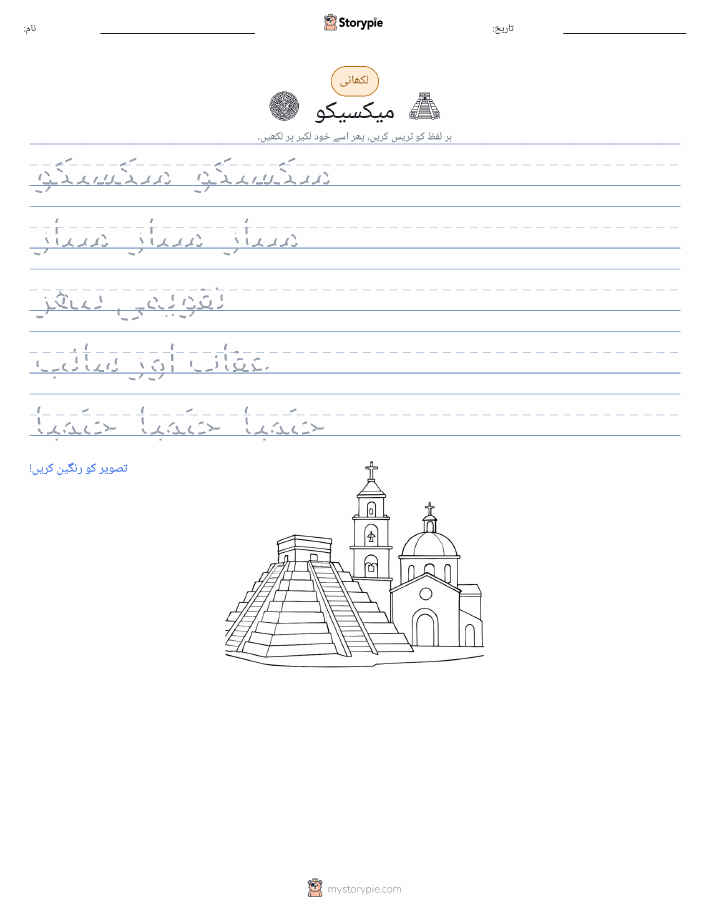 نام:
Storypie
تاریخ:
لکھائی
میکسیکو
ہر لفظ کو ٹریس کریں، پھر اسے خود لکیر پر لکھیں۔
میکسیکو میکسیکو
تقویمی پتھر
عقاب اور سانپ
تصویر کو رنگین کریں!
mystorypie.com